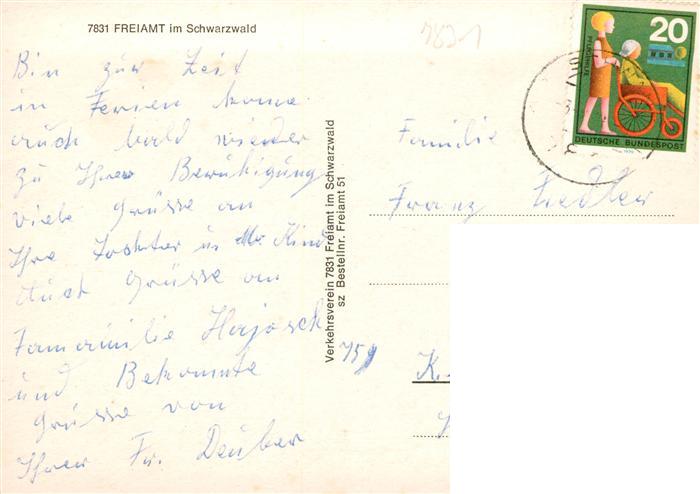 7831 FREIAMT im Schwarzwald
7831
Bin zur Zeit
in Ferien komme
auch bald wieder
zu Ihrer Beruhigung
viele Grüsse an
Ihre Tochter u. Kind
Auch Grüsse an
Familie
und Bekannte
Grüsse von
Ihrer Fr. Deuber
Verkehrsverein 7831 Freiamt im Schwarzwald
sz Bestellnr. Freiamt 51
20
DEUTSCHE BUNDESPOST
Familie
Franz Fiedler
759
K.